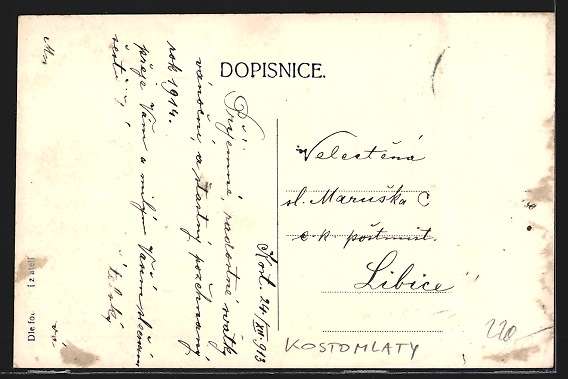 DOPISNICE.
Kost. 24/XII. 913
Příjemné, radostné svátky
vánoční, a šťastný, požehnaný
rok 1914.
přeje Vám a milým Vašim
Velectěná
sl. Maruška C
c. k. poštmist.
Libice
KOSTOMLATY
220
Dle fo